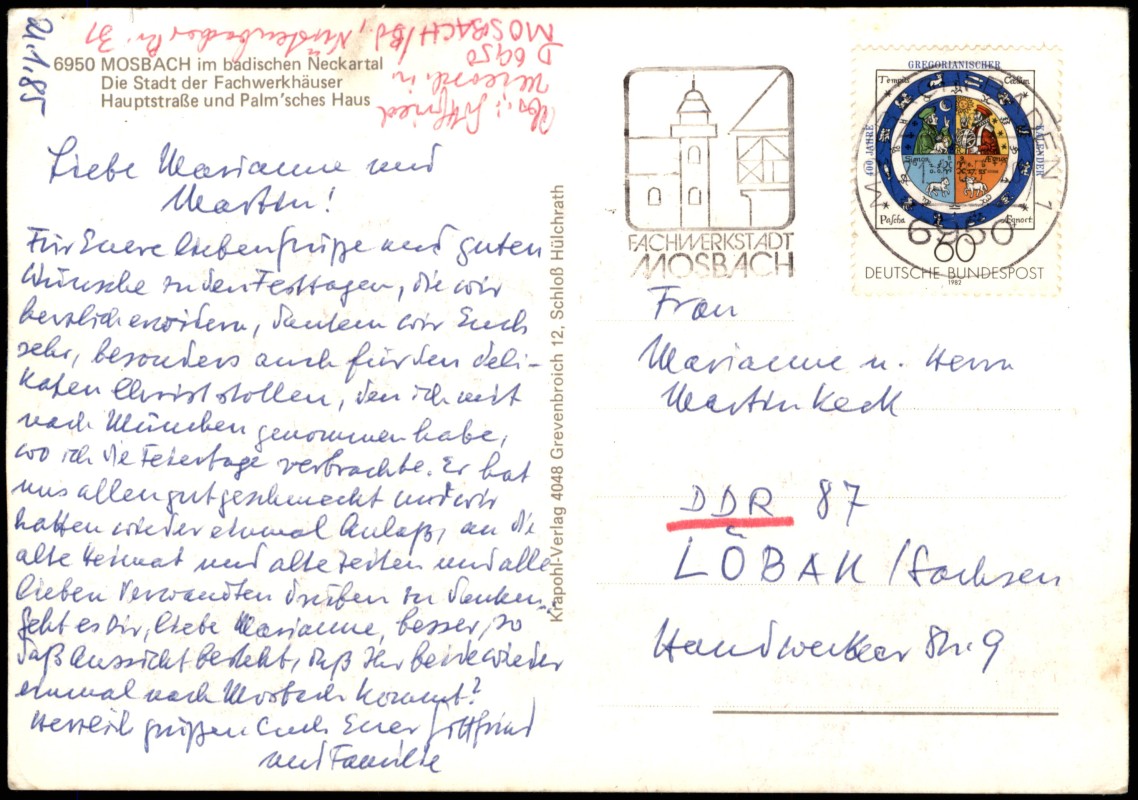 21.1.85
6950 MOSBACH im badischen Neckartal
Die Stadt der Fachwerkhäuser
Hauptstraße und Palm'sches Haus
Gottfried
D 6950
MOSBACH/Bd,
Liebe Marianne und
Martin!
Für Euere lieben Grüße und guten
Wünsche zu den Festtagen, die wir
herzlich erwidern, danken wir Euch
sehr, besonders auch für den deli-
katen Christstollen, den ich mit
nach München genommen habe,
wo ich die Feiertage verbrachte. Er hat
uns allen gut geschmeckt und wir
hatten wieder einmal Anlaß, an die
alte Heimat und alte Zeiten und alle
lieben Verwandten drüben zu denken.
Geht es Dir, liebe Marianne, besser, so
daß Aussicht besteht, daß Ihr beide wieder
einmal nach Mosbach kommt?
Herzlich grüßen Euch Euer Gottfried
und Familie
Krapohl-Verlag 4048 Grevenbroich 12, Schloß Hülchrath
FACHWERKSTADT
MOSBACH
GREGORIANISCHER
400 JAHRE
KALENDER
Pascha
6950
60
DEUTSCHE BUNDESPOST
1982
Frau
Marianne u. Herrn
Martin Keck
DDR 87
LÖBAU/Sachsen
Handwerker Str. 9